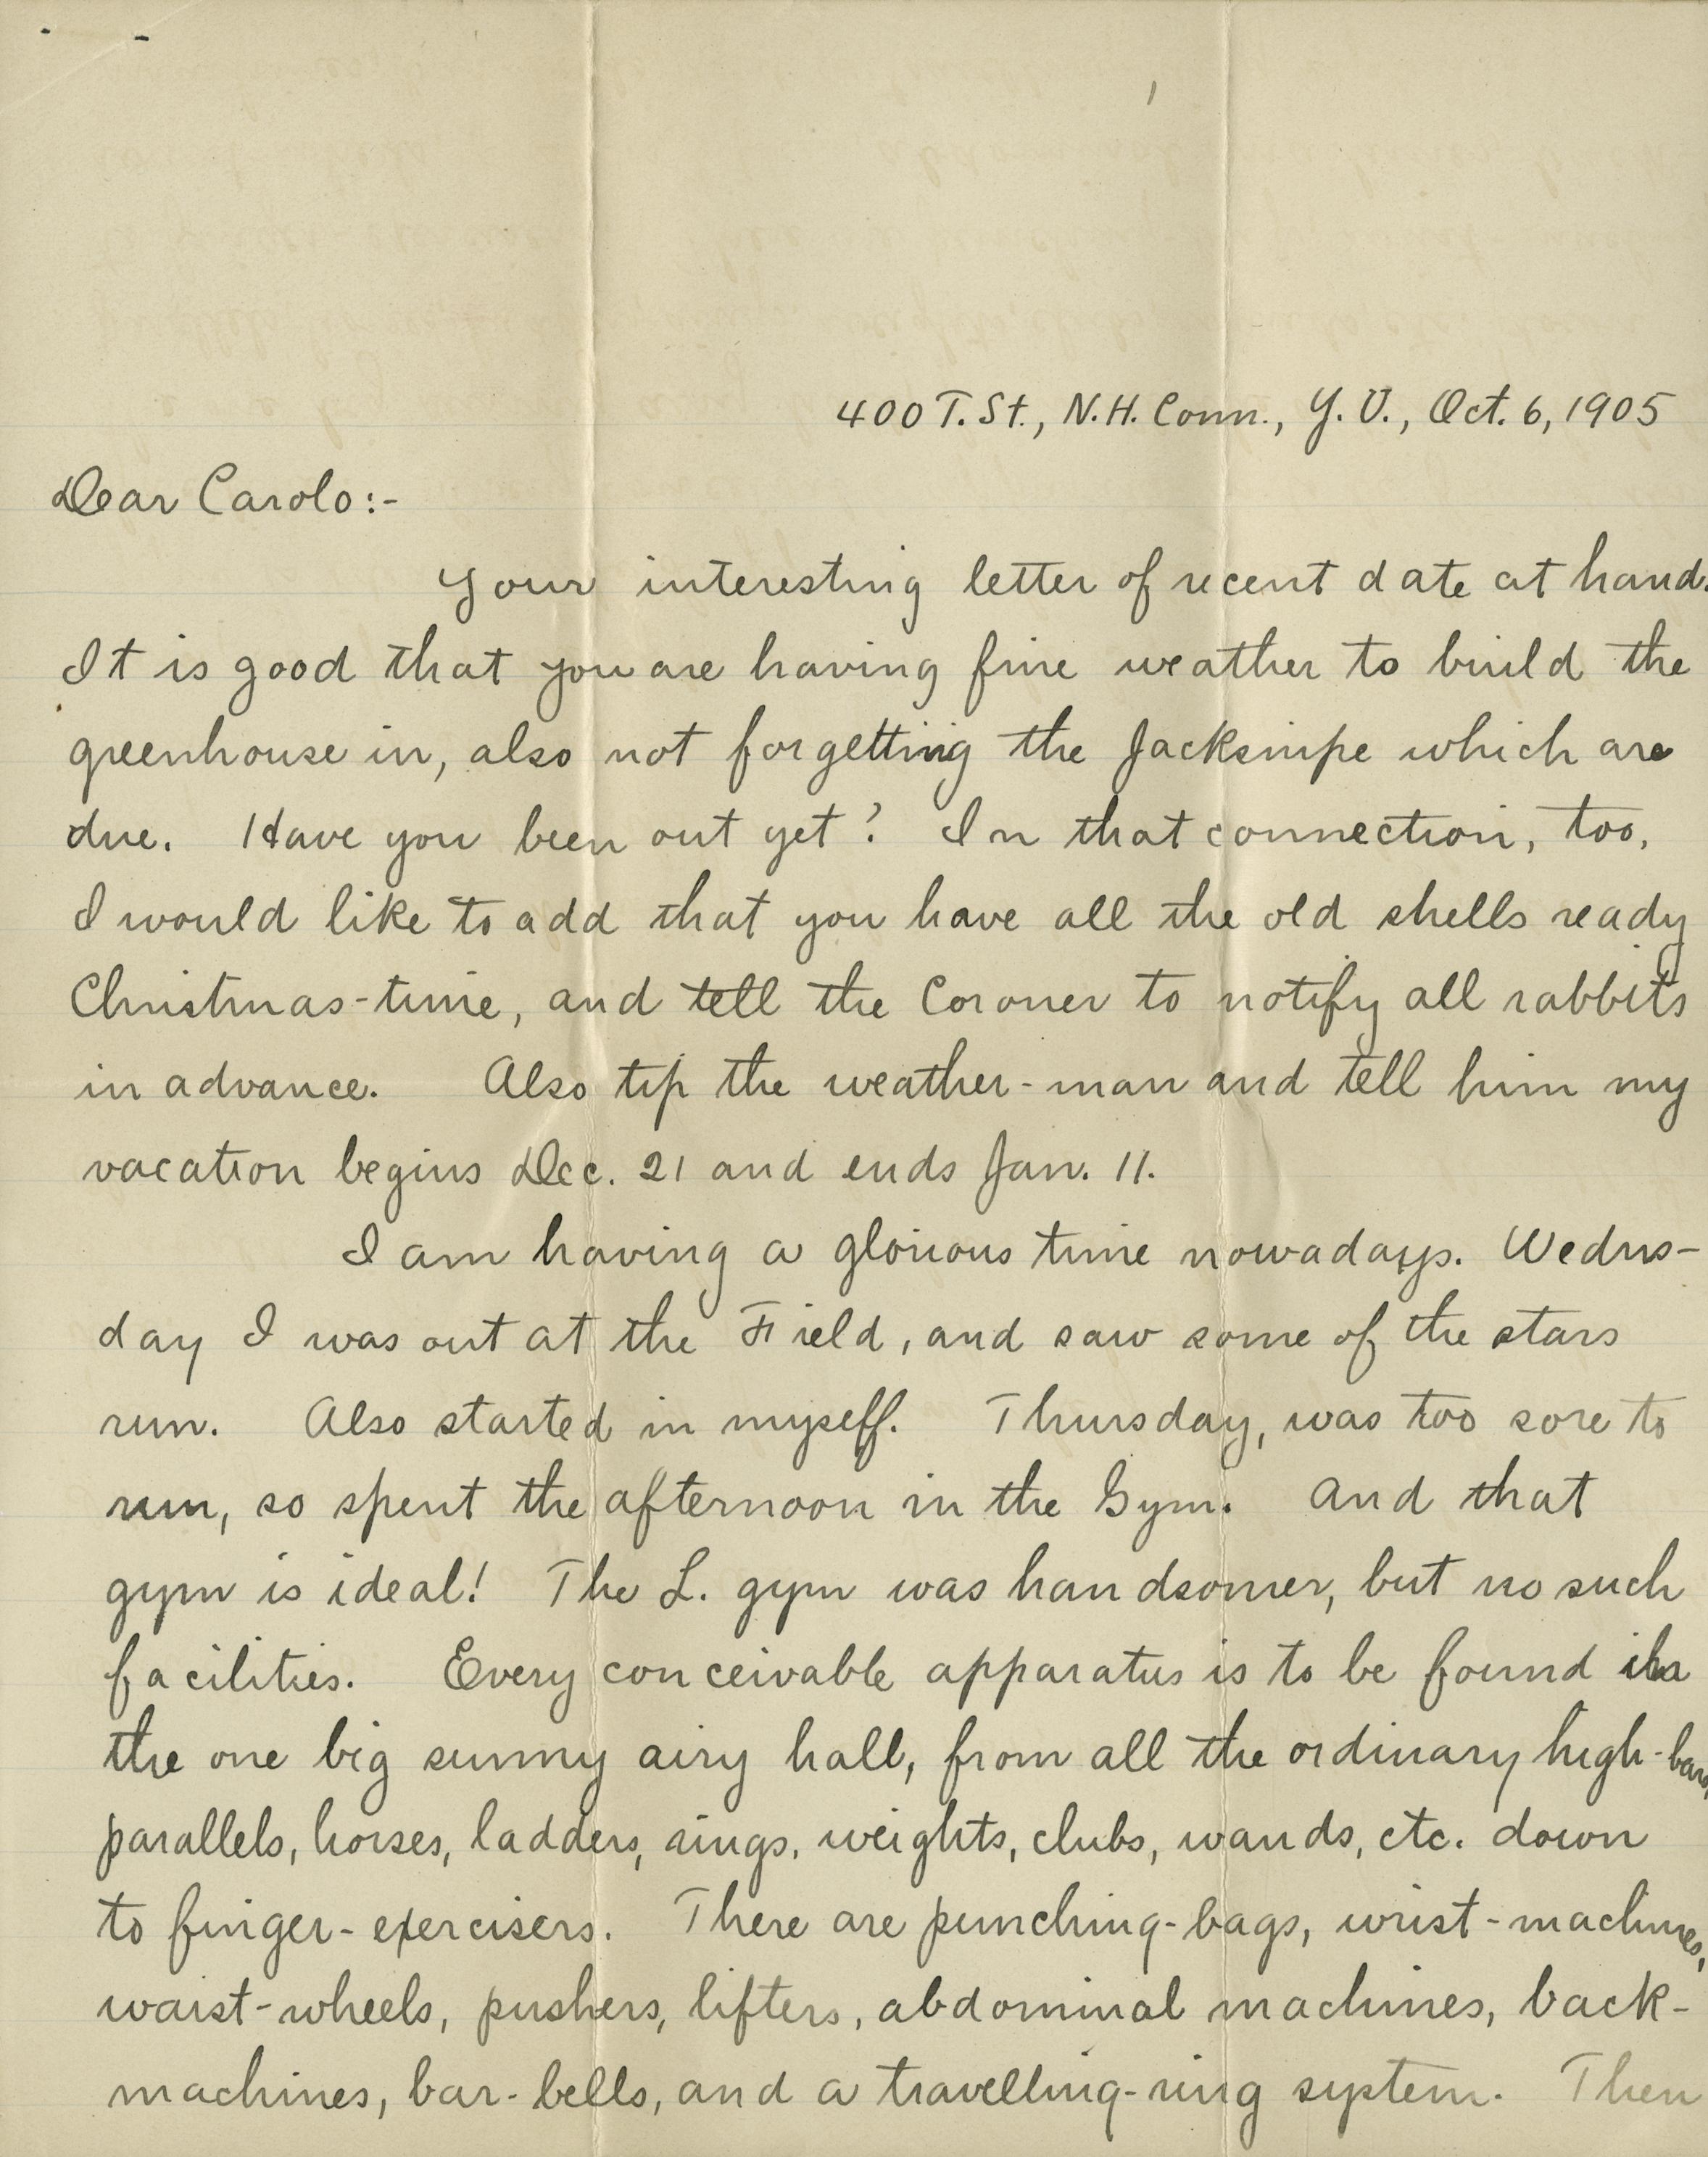 400 T. St., N.H. Conn., Y. U., Oct. 6, 1905
Dear Carolo:-
Your interesting letter of recent date at hand.
It is good that you are having fine weather to build the
greenhouse in, also not forgetting the Jacksnipe which are
due. Have you been out yet? In that connection, too,
I would like to add that you have all the old shells ready
Christmas-time, and tell the Coroner to notify all rabbits
in advance. Also tip the weather-man and tell him my
vacation begins Dec. 21 and ends Jan. 11.
I am having a glorious time nowadays. Wednes-
day I was out at the Field, and saw some of the stars
run. Also started in myself. Thursday, was too sore to
run, so spent the afternoon in the Gym. And that
gym is ideal! The L. gym was handsomer, but no such
facilities. Every conceivable apparatus is to be found in
the one big sunny airy hall, from all the ordinary high-bars,
parallels, horses, ladders, rings, weights, clubs, wands, etc. down
to finger-exercisers. There are punching-bags, wrist-machines,
waist-wheels, pushers, lifters, abdominal machines, back-
machines, bar-bells, and a travelling-ring system. Then